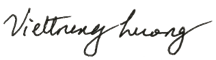 Viettrung Luong